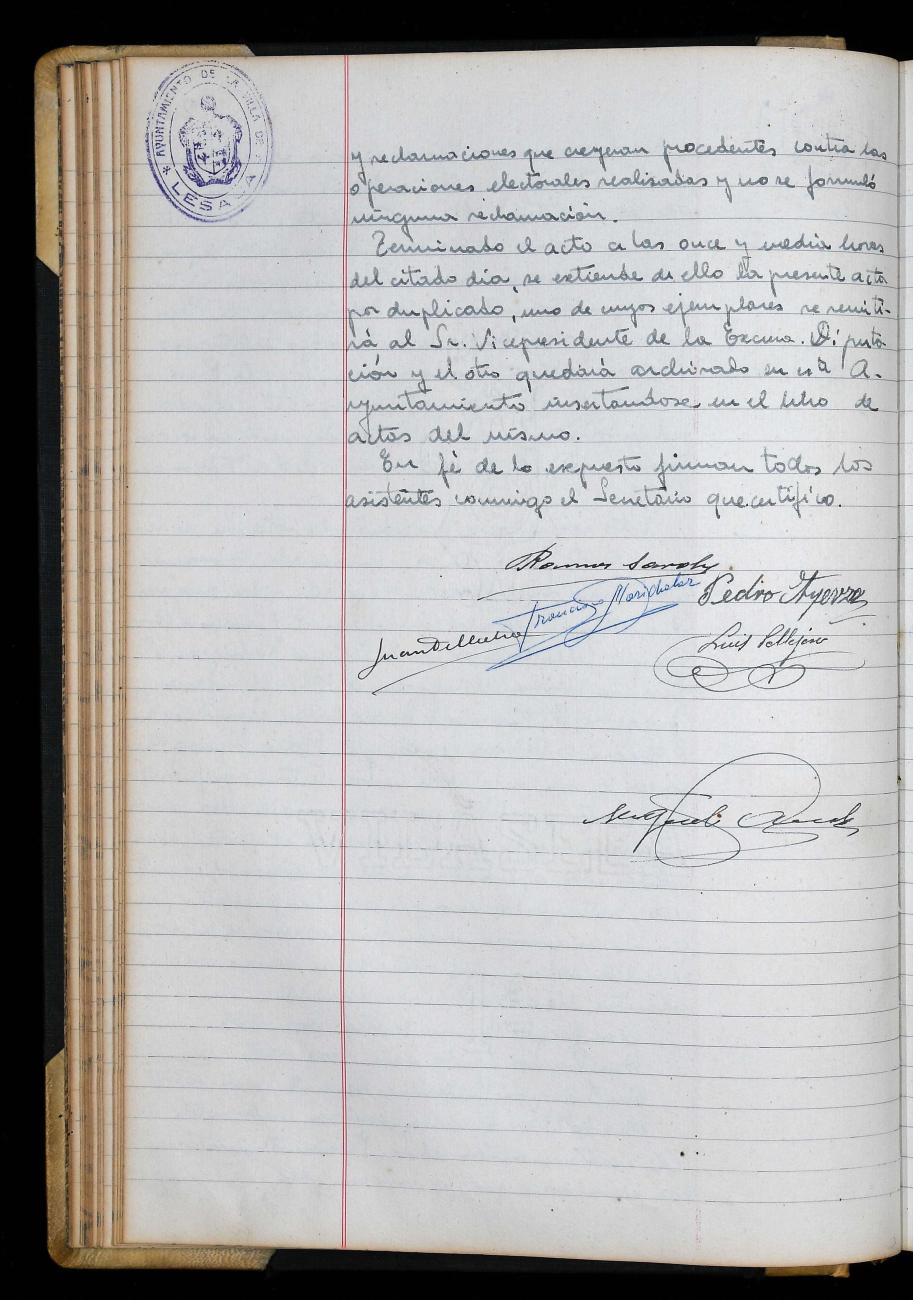 * AYUNTAMIENTO DE LA VILLA DE * LESACA
y reclamaciones que creyeran procedentes contra las
operaciones electorales realizadas y no se formuló
ninguna reclamación.
Terminado el acto a las once y media horas
del citado dia, se extiende de ello la presente acta
por duplicado, uno de cuyos ejemplares se remiti-
rá al Sr. Vicepresidente de la Excma. Diputa-
ción y el otro quedará archivado en este A-
yuntamiento insertandose en el libro de
actas del mismo.
En fé de lo expuesto firman todos los
asistentes conmigo el Secretario que certifico.
Ramon
Francisco Marichalar
Pedro
Juan
Luis
Miguel